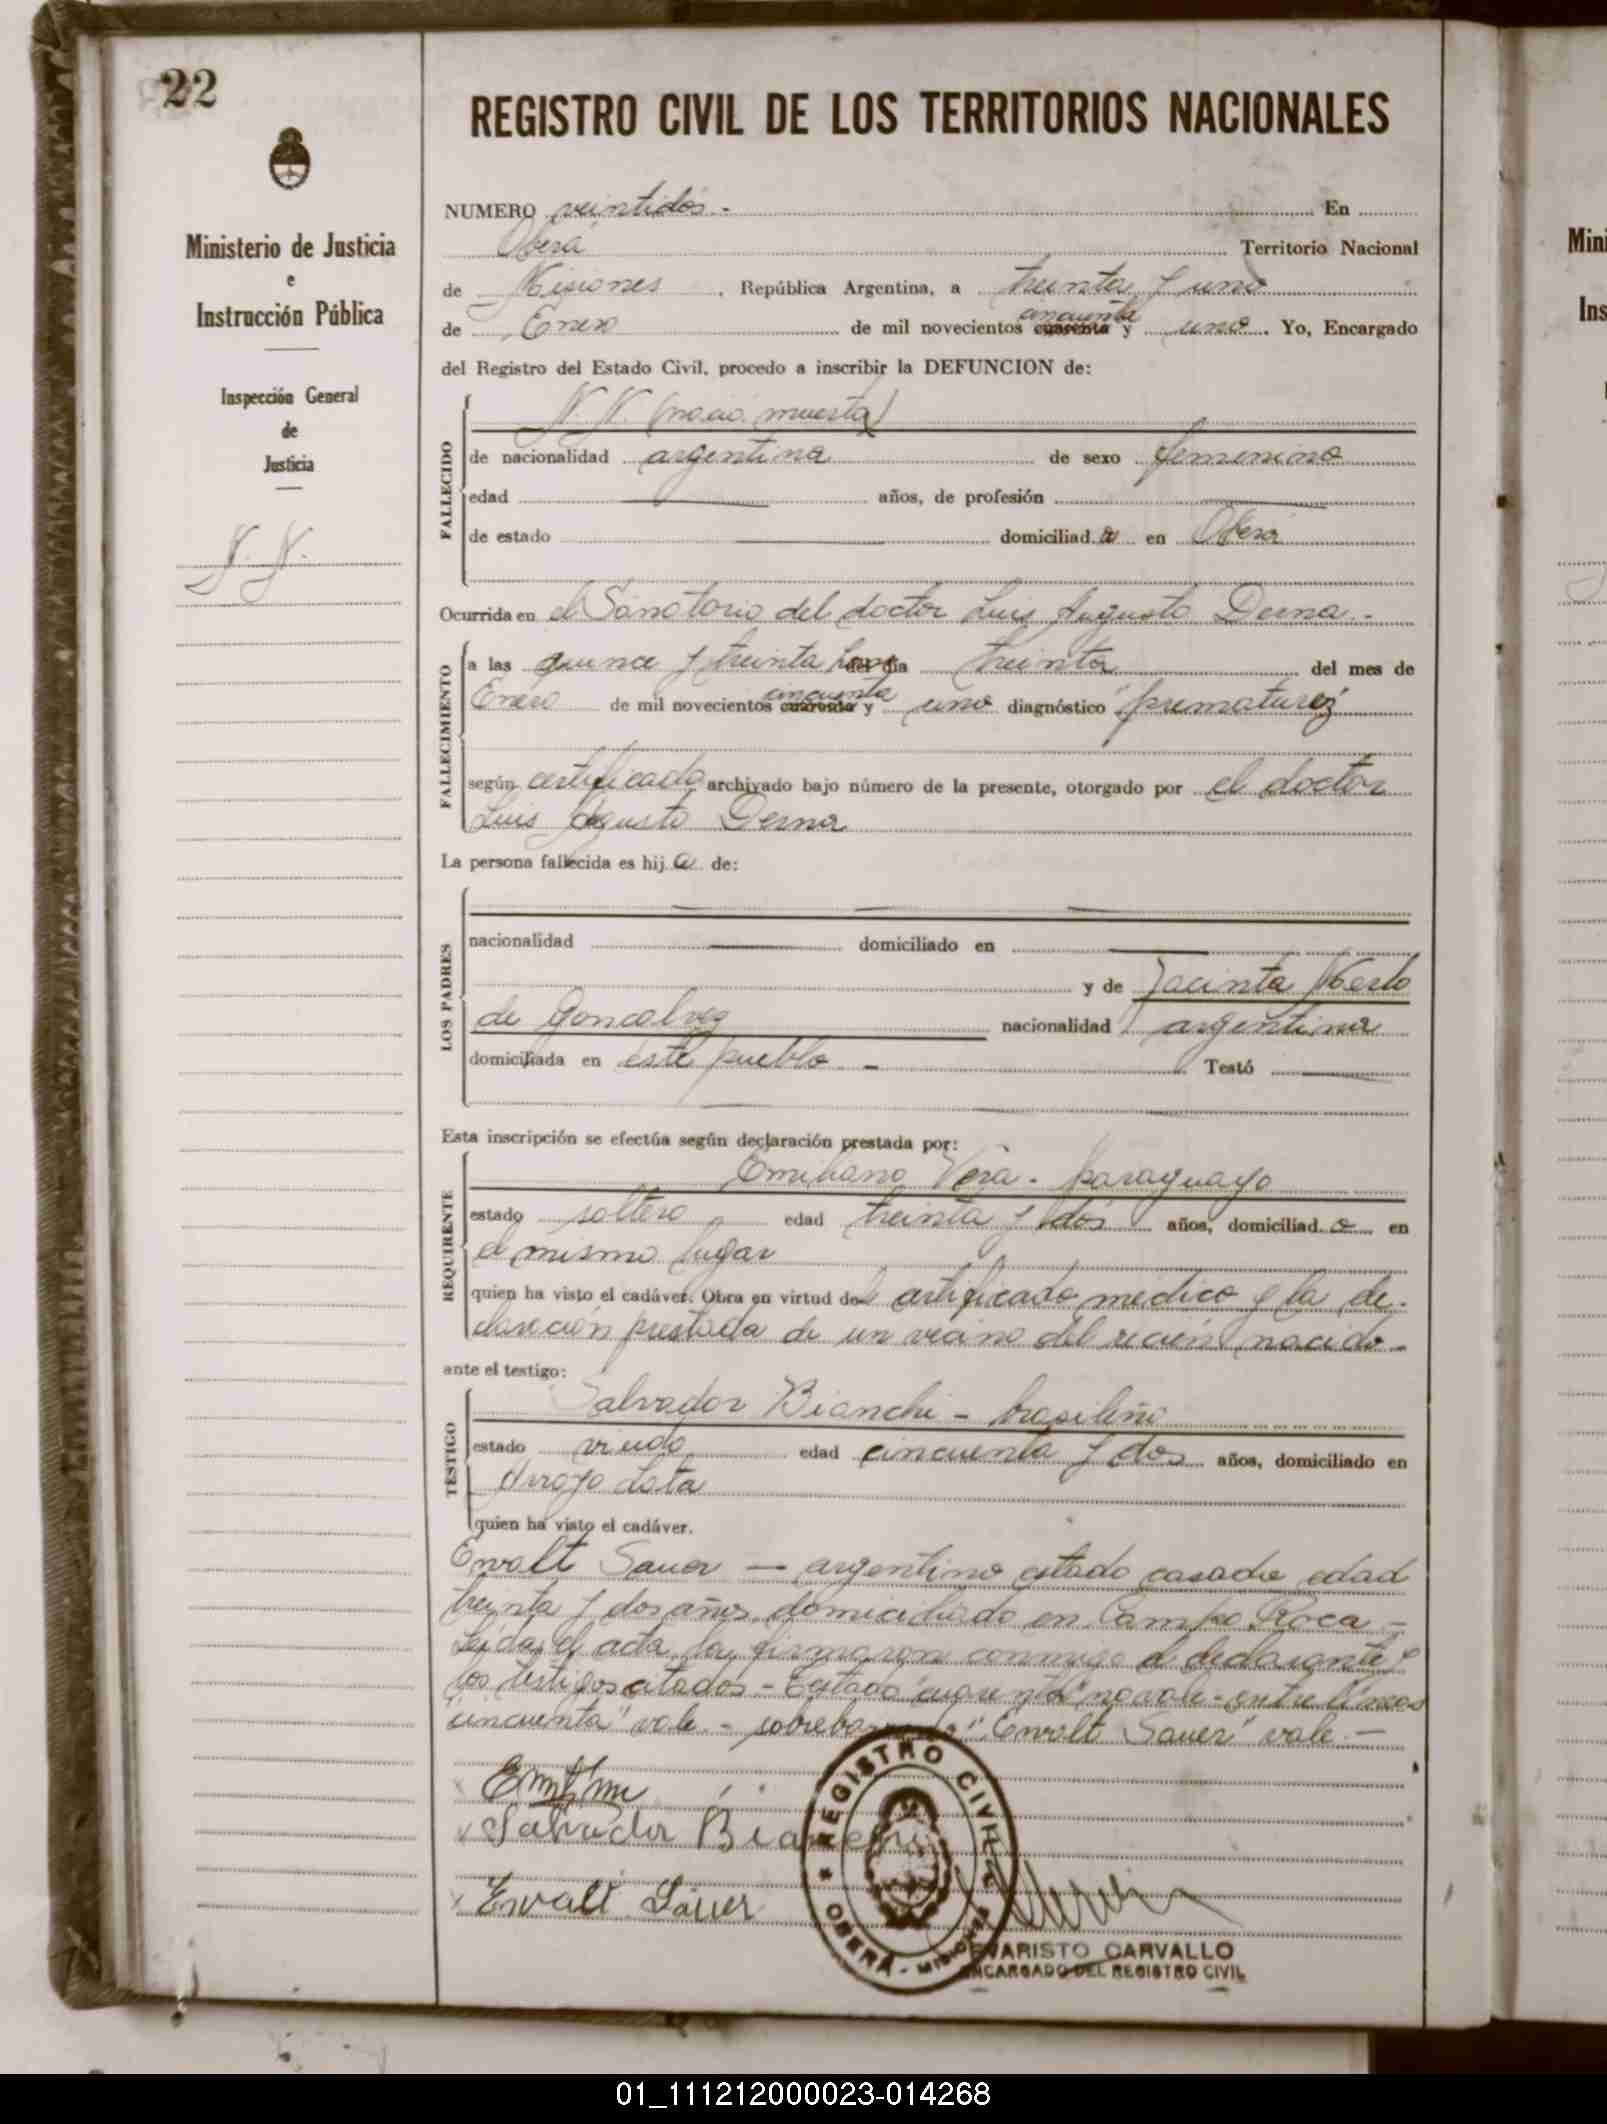 22
REGISTRO CIVIL DE LOS TERRITORIOS NACIONALES
Ministerio de Justicia
e
Instrucción Pública
Inspección General
de
Justicia
N. N.
NUMERO veintidós.- En
Oberá Territorio Nacional
de Misiones, República Argentina, a treinta y uno
de Enero de mil novecientos cuarenta cincuenta y uno. Yo, Encargado
del Registro del Estado Civil, procedo a inscribir la DEFUNCION de:
FALLECIDO
N. N. (nació muerta)
de nacionalidad argentina de sexo femenino
edad años, de profesión
de estado domiciliad a en Oberá
Ocurrida en el Sanatorio del doctor Luis Augusto Derna.-
FALLECIMIENTO
a las quince y treinta horas del día treinta del mes de
Enero de mil novecientos cuarenta cincuenta y uno diagnóstico "prematurez"
según certificado archivado bajo número de la presente, otorgado por el doctor
Luis Agusto Derna
La persona fallecida es hij a de:
LOS PADRES
nacionalidad domiciliado en
y de Jacinta
de Goncalvez nacionalidad argentina
domiciliada en este pueblo - Testó
Esta inscripción se efectúa según declaración prestada por:
REQUIRENTE
Emiliano Vera - paraguayo
estado soltero edad treinta y dos años, domiciliad o en
el mismo lugar
quien ha visto el cadáver. Obra en virtud del certificado médico y la de-
claración prestada de un vecino del recién nacido -
ante el testigo:
TESTIGO
Salvador Bianchi - brasileño
estado viudo edad cincuenta y dos años, domiciliado en
Arroyo
quien ha visto el cadáver.
Ervalt Sauer — argentino estado casado edad
treinta y dos años, domiciliado en Campo Roca -
Leída el acta la firmaron conmigo el declarante y
los testigos citados - Testado "cuarenta" no vale - entre líneas
"cincuenta" vale - sobreborrado: "Ervalt Sauer" vale -
Salvador Bianchi
Ervalt Sauer
REGISTRO CIVIL
OBERÁ - MISIONES
EVARISTO CARVALLO
ENCARGADO DEL REGISTRO CIVIL
Mini
Ins
01_111212000023-014268